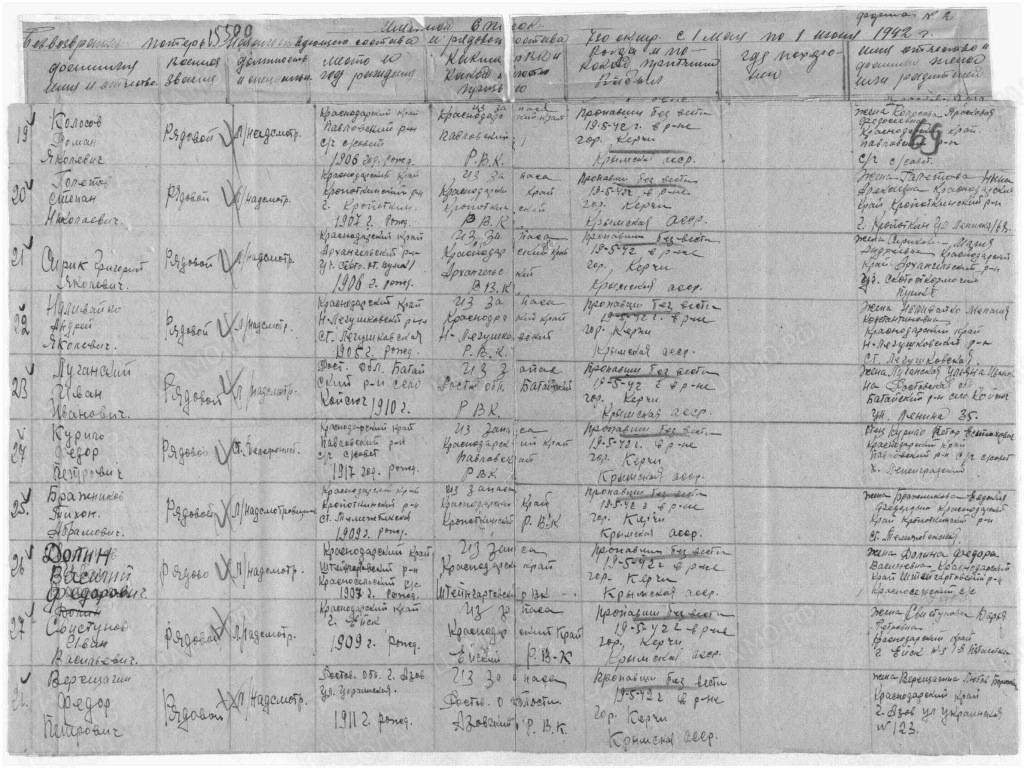 форма № 2
15500
Именной список
Безвозвратных потерь начальствующего состава и рядового состава 720 с 1 мая по 1 июня 1942 г.
фамилия имя и отчество
Военное звание
должность и
место и год рождения
Каким Р.В.К и
Когда и по какой причине выбыл
где похоронен
имя отчество и фамилия жены или родителей
69
19
Колосов
Роман
Яковлевич
Рядовой
Л/надсмотр.
Краснодарский край
Павловский р-н
с/с совет
1906 год. рожд.
Из запаса
Краснодарский край
Павловский
Р.В.К.
Пропавши без вести
19-5-42 г. в р-не
гор. Керчи
Крымская асср.
Жена
Краснодарский край
Павловский р-н
с/с совет.
20
Голетов
Степан
Николаевич.
Рядовой
Л/надсмотр.
Краснодарский край
Кропоткинский р-н
г. Кропоткин.
1907 г. рожд.
Из запаса
Краснодарский край
Кропоткинский
Р.В.К
Пропавши без вести
19-5-42 г. в р-не
гор. Керчи
Крымская асср.
Жена Галетова Анна
Алексеевна Краснодарский
край Кропоткинский р-н
г. Кропоткин ул Ленина 168.
21
Сирик Григорий
Яковлевич.
Рядовой
Л/надсмотр.
Краснодарский край
Архангельский р-н
1906 г. рожд.
Из запаса
Краснодарский край
Архангельский
Р.В.К.
Пропавши без вести
19-5-42 г. в р-не
гор. Керчи
Крымская асср.
Жена Сирикова Мария
Андреевна Краснодарский
край Архангельский р-н
Скотооткормочно
пункт
22
Наливайко
Андрей
Яковлевич.
Рядовой
Л/надсмотр.
Краснодарский край
Н-Легушковский р-н
ст. Легушковская
1905 г. рожд.
Из запаса
Краснодарский край
Н-Легушковский
Р.В.К.
Пропавши без вести
19-5-42 г. в р-не
гор. Керчи
Крымская асср.
Жена Наливайко Мелания
Константиновна
Краснодарский край
Н-Легушковский р-н
ст. Легушковская.
23
Луганский
Иван
Иванович.
Рядовой
Л/надсмотр.
Рост. обл. Батай
ский р-н село
Койсуг 1910 г.
Из запаса
Рост. обл. Батайский
Р.В.К.
Пропавши без вести
19-5-42 г. в р-не
гор. Керчи
Крымская асср.
Жена Луганская
на Ростовская обл
Батайский р-н село Койсуг
ул. Ленина 35.
24
Курило
Федор
Петрович
Рядовой
Ст. телефонист.
Краснодарский край
Павловский р-н
с/с совет
1917 год. рожд.
Из запаса
Краснодарский край
Павловский
Р.В.К.
Пропавши без вести
19-5-42 г. в р-не
гор. Керчи
Крымская асср.
Отец Курило Петор
Краснодарский край
Павловский р-н с/с совет
х. Ленинградский
25.
Бражников
Тихон.
Абрамович.
Рядовой
Л/Надсмотровщик
Краснодарский край
Кропоткинский р-н
ст. Темижбекская
1909 г. рожд.
Из запаса
Краснодарский край
Кропоткинский Р.В.К
Пропавши без вести
19-5-42 г. в р-не
гор. Керчи
Крымская асср.
Жена Бражникова Евдокия
Федоровна Краснодарский
край Кропоткинский р-н
ст. Темижбекская.
26
Долин
Василий
Федорович
Рядово
Л/надсмотр.
Краснодарский край
Штейнгартовский р-н
Красносельский с/с.
1907 г. рожд.
Из запаса
Краснодарский край
Штейнгартовский РВК
Пропавши без вести
19-5-42 г. в р-не
гор. Керчи
Крымская асср.
Жена Долина Федора
Васильевна, Краснодарский
край Штейнгартовский р-н
Красносельский с/с
27
Свистунов
Иван
Васильевич.
Рядовой
Л/Надсмотр.
Краснодарский край
г. Ейск
1909 г. рожд.
Из запаса
Краснодарский край
Ейский Р.В.К
Пропавши без вести
19-5-42 г. в р-не
гор. Керчи
Крымская асср.
Жена Свистунова Дарья
Петровна
Краснодарский край
г Ейск
Верещагин
Федор
Петрович
Рядовой
Л/Надсмотр.
Ростов. обл. г. Азов
ул. Украинская.
1911 г. рожд.
Из запаса
Ростов. области
Азовский Р.В.К.
Пропавши без вести
19-5-42 г. в р-не
гор. Керчи
Крымская асср.
Жена Верещагина Любовь
Краснодарский край
г. Азов ул Украинская
№ 123.